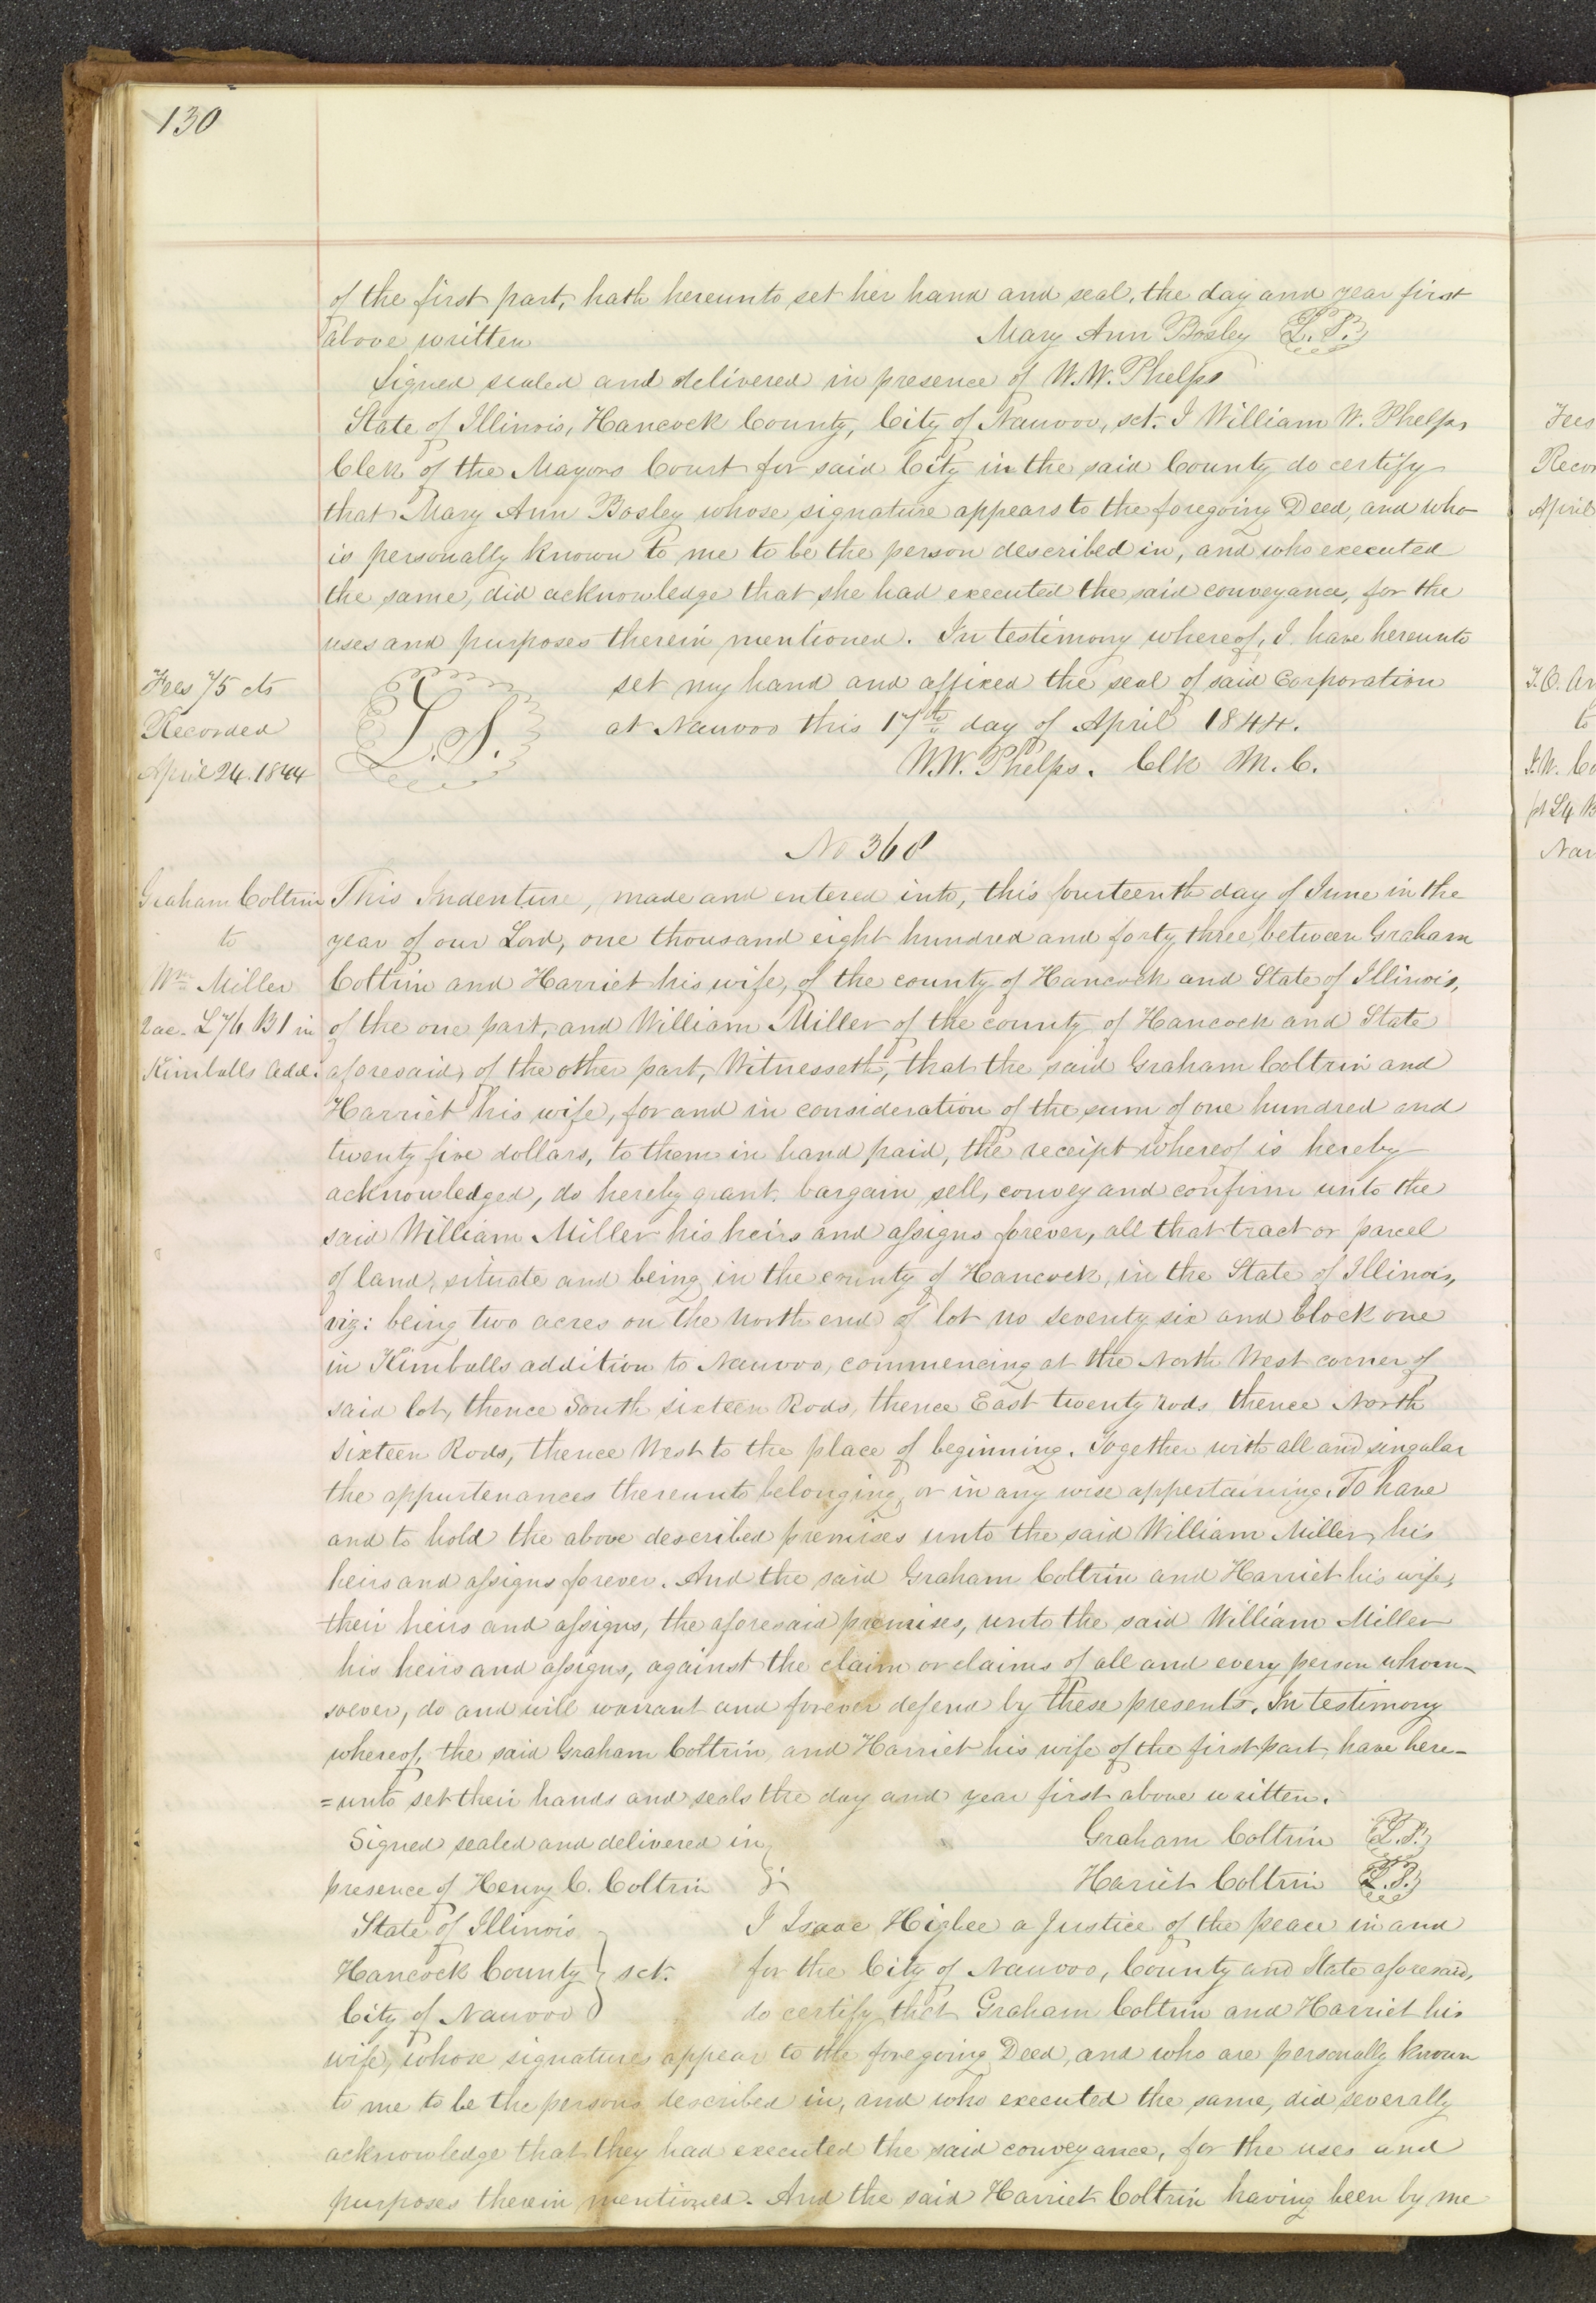 130
of the first part, hath hereunto set her hand and seal, the day and year first
above written Mary Ann Bosley L.S.
Signed sealed and delivered in presence of W.W. Phelps
State of Illinois, Hancock County, City of Nauvoo, sct. I William W. Phelps,
Clerk of the Mayors Court for said City in the said County do certify
that Mary Ann Bosley whose signature appears to the foregoing Deed, and who
is personally known to me to be the person described in, and who executed
the same, did acknowledge that she had executed the said conveyance, for the
uses and purposes therein mentioned. In testimony whereof, I have hereunto
Fees 75 cts
Recorded
April 24. 1844
L.S.
set my hand and affixed the seal of said Corporation
at Nauvoo this 17th day of April 1844.
W.W. Phelps. Clk M.C.
No 368
Graham Coltrin
to
Wm Miller
2 ac. L 76 B1 in
Kimballs Add.
This Indenture, made and entered into, this fourteenth day of June in the
year of our Lord, one thousand eight hundred and forty three, between Graham
Coltrin and Harriet his wife, of the county of Hancock and State of Illinois,
of the one part, and William Miller of the county of Hancock and State
aforesaid, of the other part, Witnesseth, that the said Graham Coltrin and
Harriet his wife, for and in consideration of the sum of one hundred and
twenty five dollars, to them in hand paid, the receipt whereof is hereby
acknowledged, do hereby grant. bargain, sell, convey and confirm unto the
said William Miller his heirs and assigns forever, all that tract or parcel
of land, situate and being in the county of Hancock, in the State of Illinois,
viz: being two acres on the North end of lot no seventy six and block one
in Kimballs addition to Nauvoo, commencing at the North West corner of
said lot, thence South sixteen Rods, thence East twenty rods thence North
Sixteen Rods, thence West to the place of beginning. Together with all and singular
the appurtenances thereunto belonging, or in any wise appertaining. To have
and to hold the above described premises unto the said William Miller, his
heirs and assigns forever. And the said Graham Coltrin and Harriet his wife,
their heirs and assigns, the aforesaid premises, unto the said William Miller
his heirs and assigns, against the claim or claims of all and every person whom-
soever, do and will warrant and forever defend by these presents. In testimony
whereof, the said Graham Coltrin, and Harriet his wife of the first part, have here-
=unto set their hands and seals the day and year first above written.
Signed sealed and delivered in Graham Coltrin L.S.
presence of Henry C. Coltrin Hariet Coltrin L.S.
State of Illinois
Hancock County sct.
City of Nauvoo
I Isaac Higbee a Justice of the peace in and
for the City of Nauvoo, County and State aforesaid,
do certify that Graham Coltrin and Harriet his
wife, whose signatures appear to the foregoing Deed, and who are personally known
to me to be the persons described in, and who executed the same, did severally
acknowledge that they had executed the said conveyance, for the uses and
purposes therein mentioned. And the said Harriet Coltrin having been by me
Fees
April
to